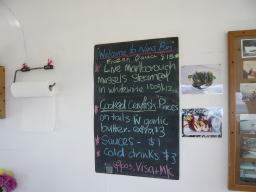 Welcome to Nins Bin
Live Marlborough
Mussels Steamed
in white wine
Cooked Crayfish Prices
on tails w garlic
butter extra $3
Sauces - $1
Cold drinks $3
Eftpos, Visa + M/c